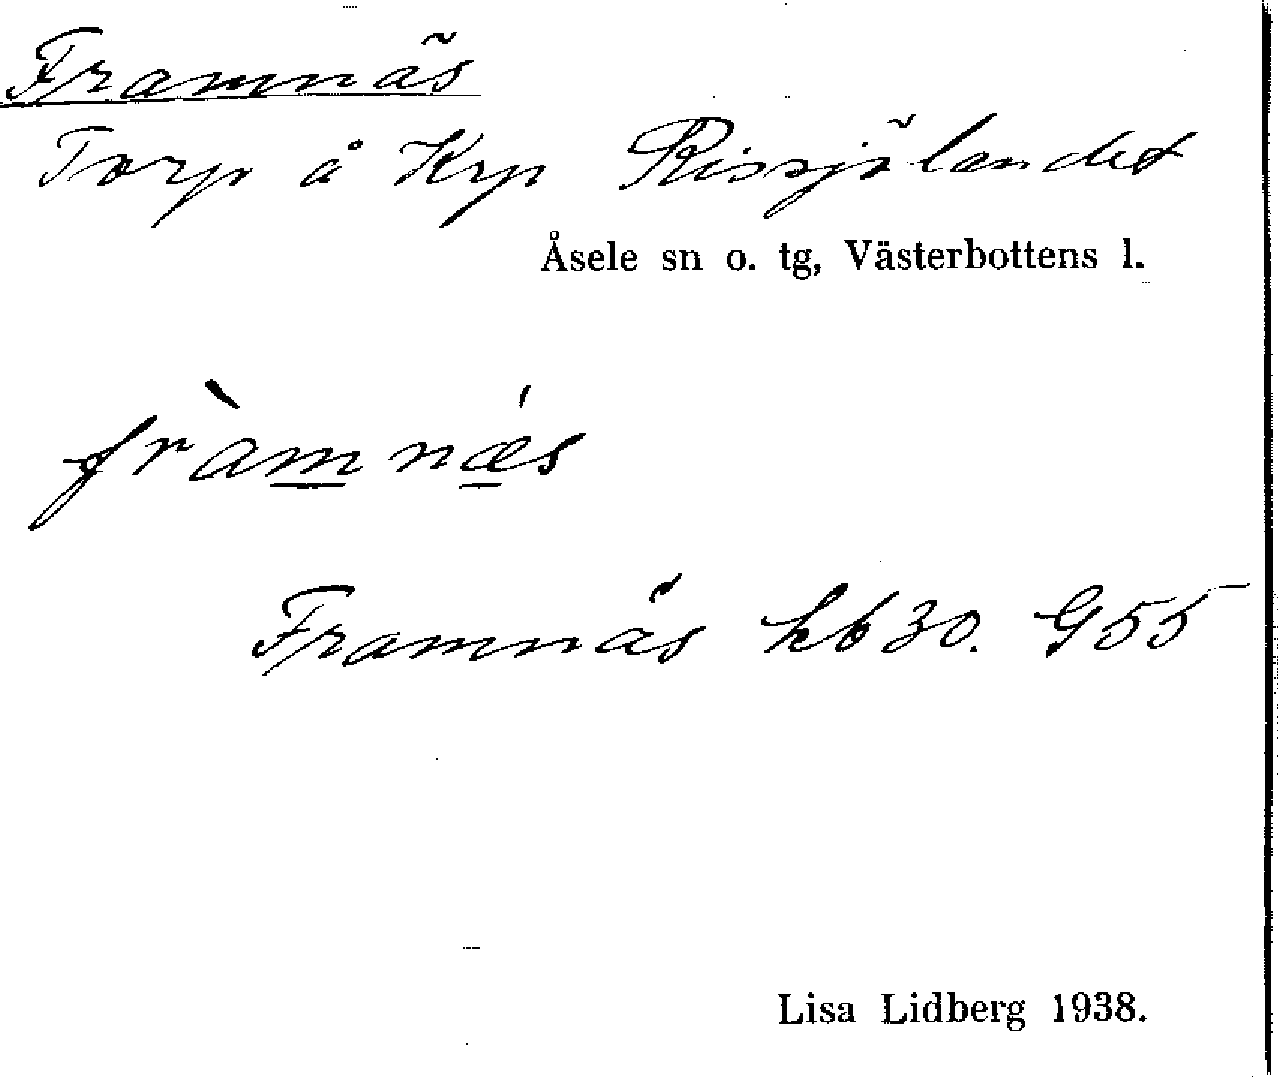 Framnäs
Torp å Krp Rissjölandet
Åsele sn o. tg, Västerbottens l.
fràmnǽs
Framnäs hb 30. G55
Lisa Lidberg 1938.